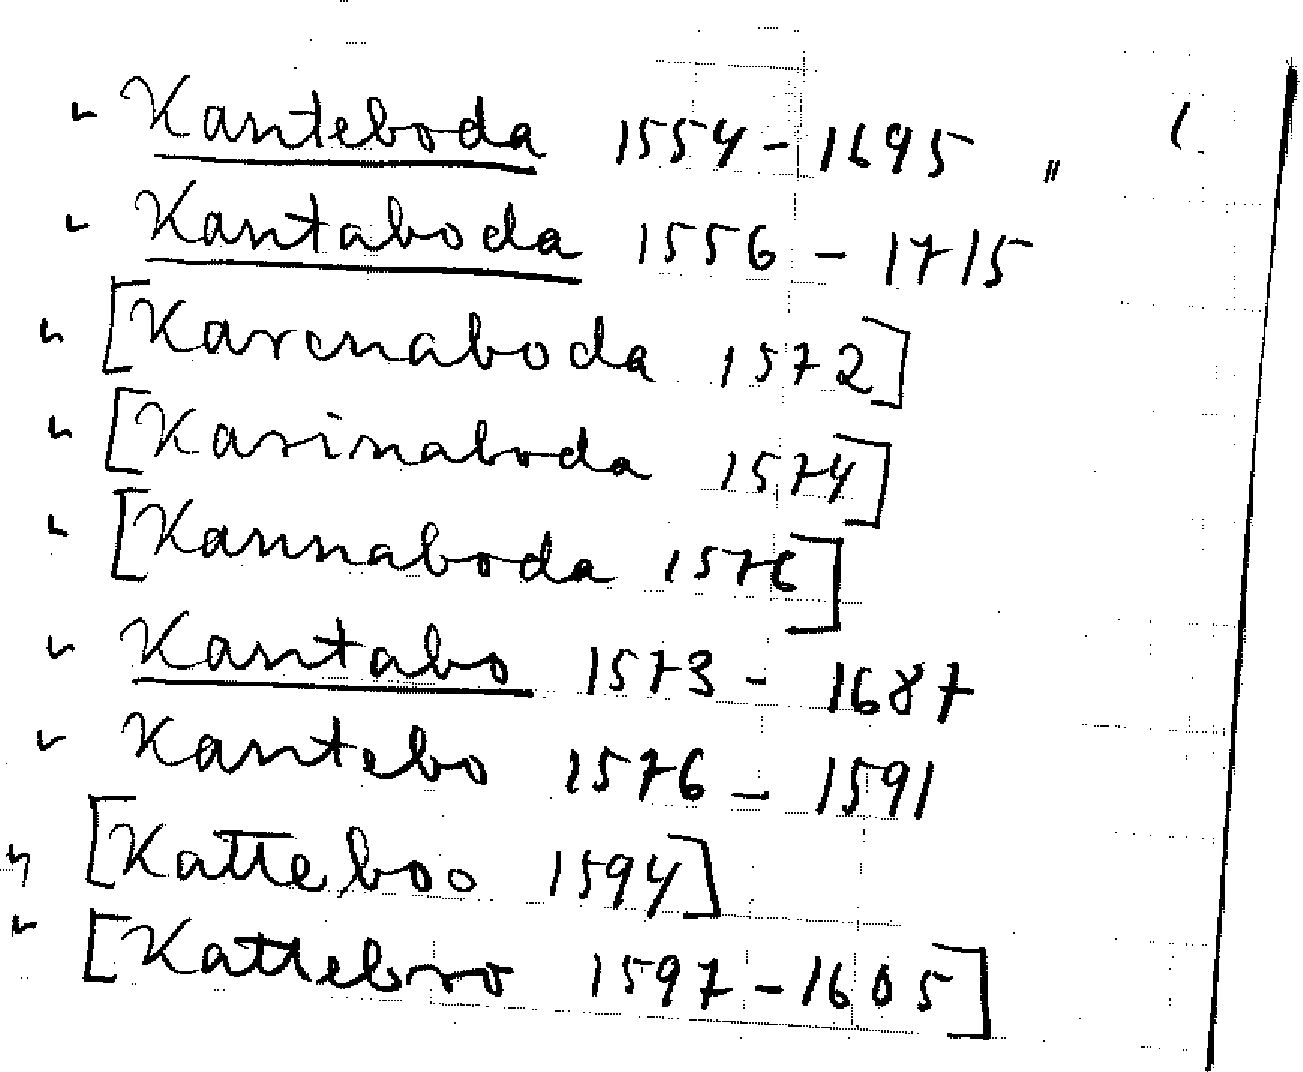 Kanteboda 1554-1695 "
Kantaboda 1556 - 1715
[Karenaboda 1572]
[Karinaboda 1574]
[Kannaboda 1576]
Kantabo 1573 - 1687
Kantebo 1576 - 1591
[Katteboo 1594]
[Kattebro 1597-1605]